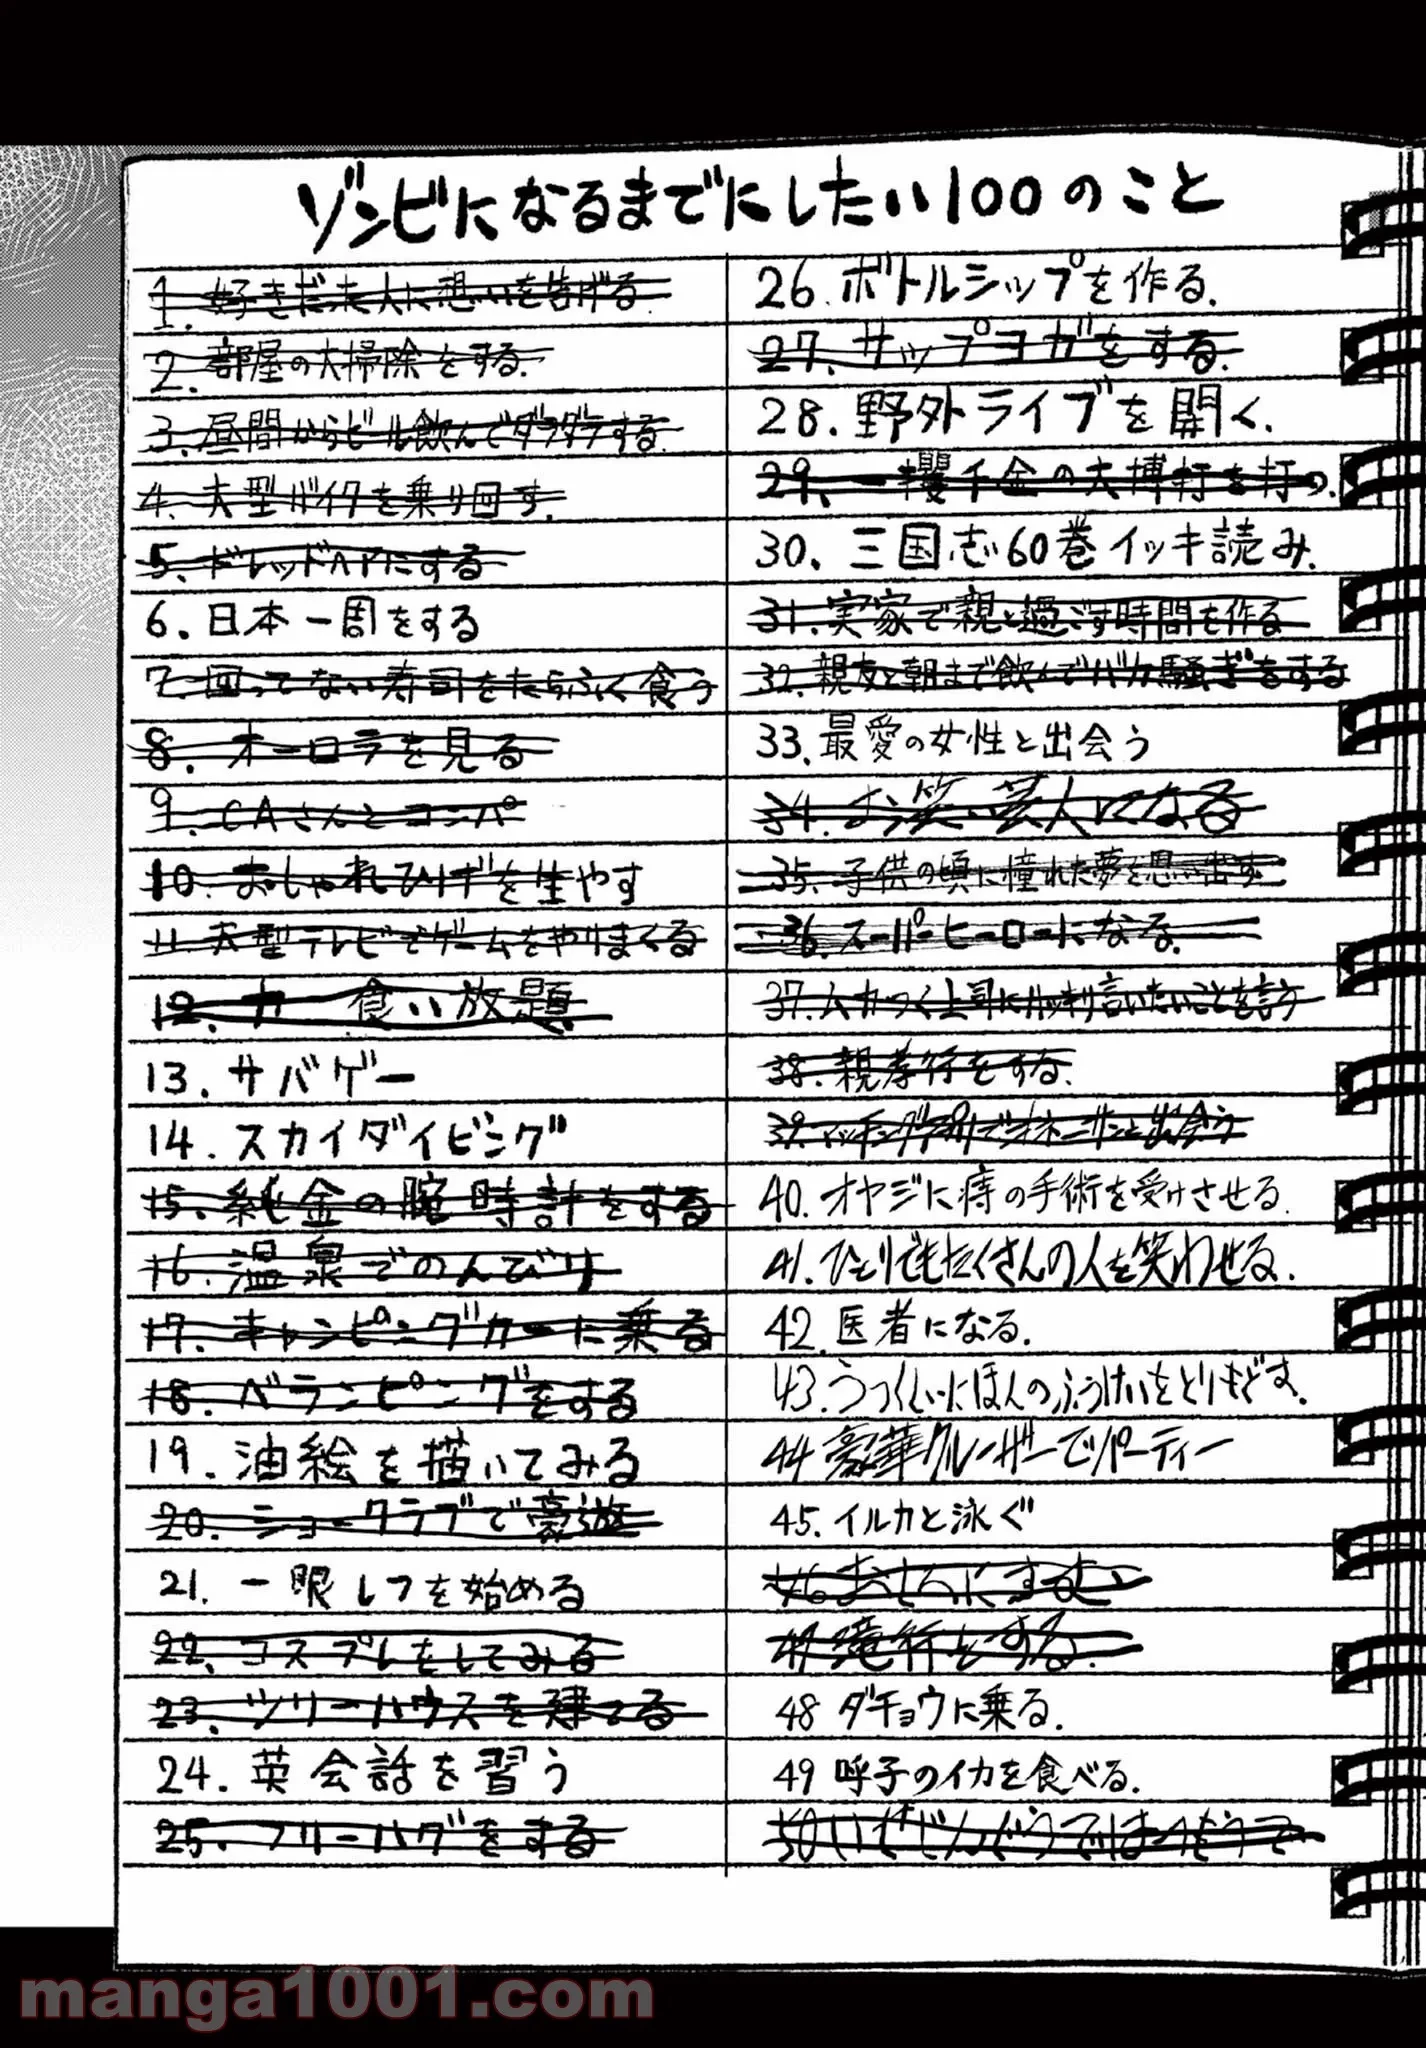 ゾンビになるまでにしたい100のこと
1. 好きだった人に想いを告げる
2. 部屋の大掃除をする.
3. 昼間からビール飲んでダラダラする.
4. 大型バイクを乗り回す.
5. ドレッドヘアにする
6. 日本一周をする
7. 回ってない寿司をたらふく食う
8. オーロラを見る
9. CAさんとコンパ
10. おしゃれひげを生やす
11. 大型テレビでゲームをやりまくる
12. カ 食い放題
13. サバゲー
14. スカイダイビング
15. 純金の腕時計をする
16. 温泉でのんびり
17. キャンピングカーに乗る
18. ベランピングをする
19. 油絵を描いてみる
20. ショークラブで豪遊
21. 一眼レフを始める
22. コスプレをしてみる
23. ツリーハウスを建てる
24. 英会話を習う
25. フリーハグをする
26. ボトルシップを作る.
27. サップヨガをする
28. 野外ライブを開く.
29. 一攫千金の大博打を打つ.
30. 三国志60巻イッキ読み.
31. 実家で親と過ごす時間を作る
32. 親友と朝まで飲んでバカ騒ぎをする
33. 最愛の女性と出会う
34. お笑い芸人になる
35. 子供の頃に憧れた夢を思い出す
36. スーパーヒーローになる.
37. ムカつく上司にハッキリ言いたいことを言う
38. 親孝行をする.
39. マッチングアプリでオネーサンと出会う
40. オヤジに痔の手術を受けさせる.
41. ひとりでもたくさんの人を笑わせる.
42. 医者になる.
43. うつくしいにほんのふうけいをとりもどす.
44 豪華クルーザーでパーティー
45. イルカと泳ぐ
46
47 滝行をする.
48 ダチョウに乗る.
49 呼子のイカを食べる.
50
manga1001.com